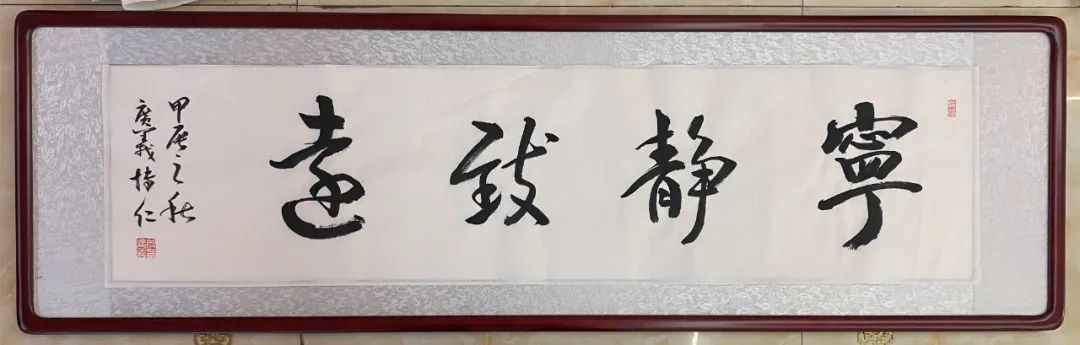 寧靜致遠
甲辰之秋
廣義博仁